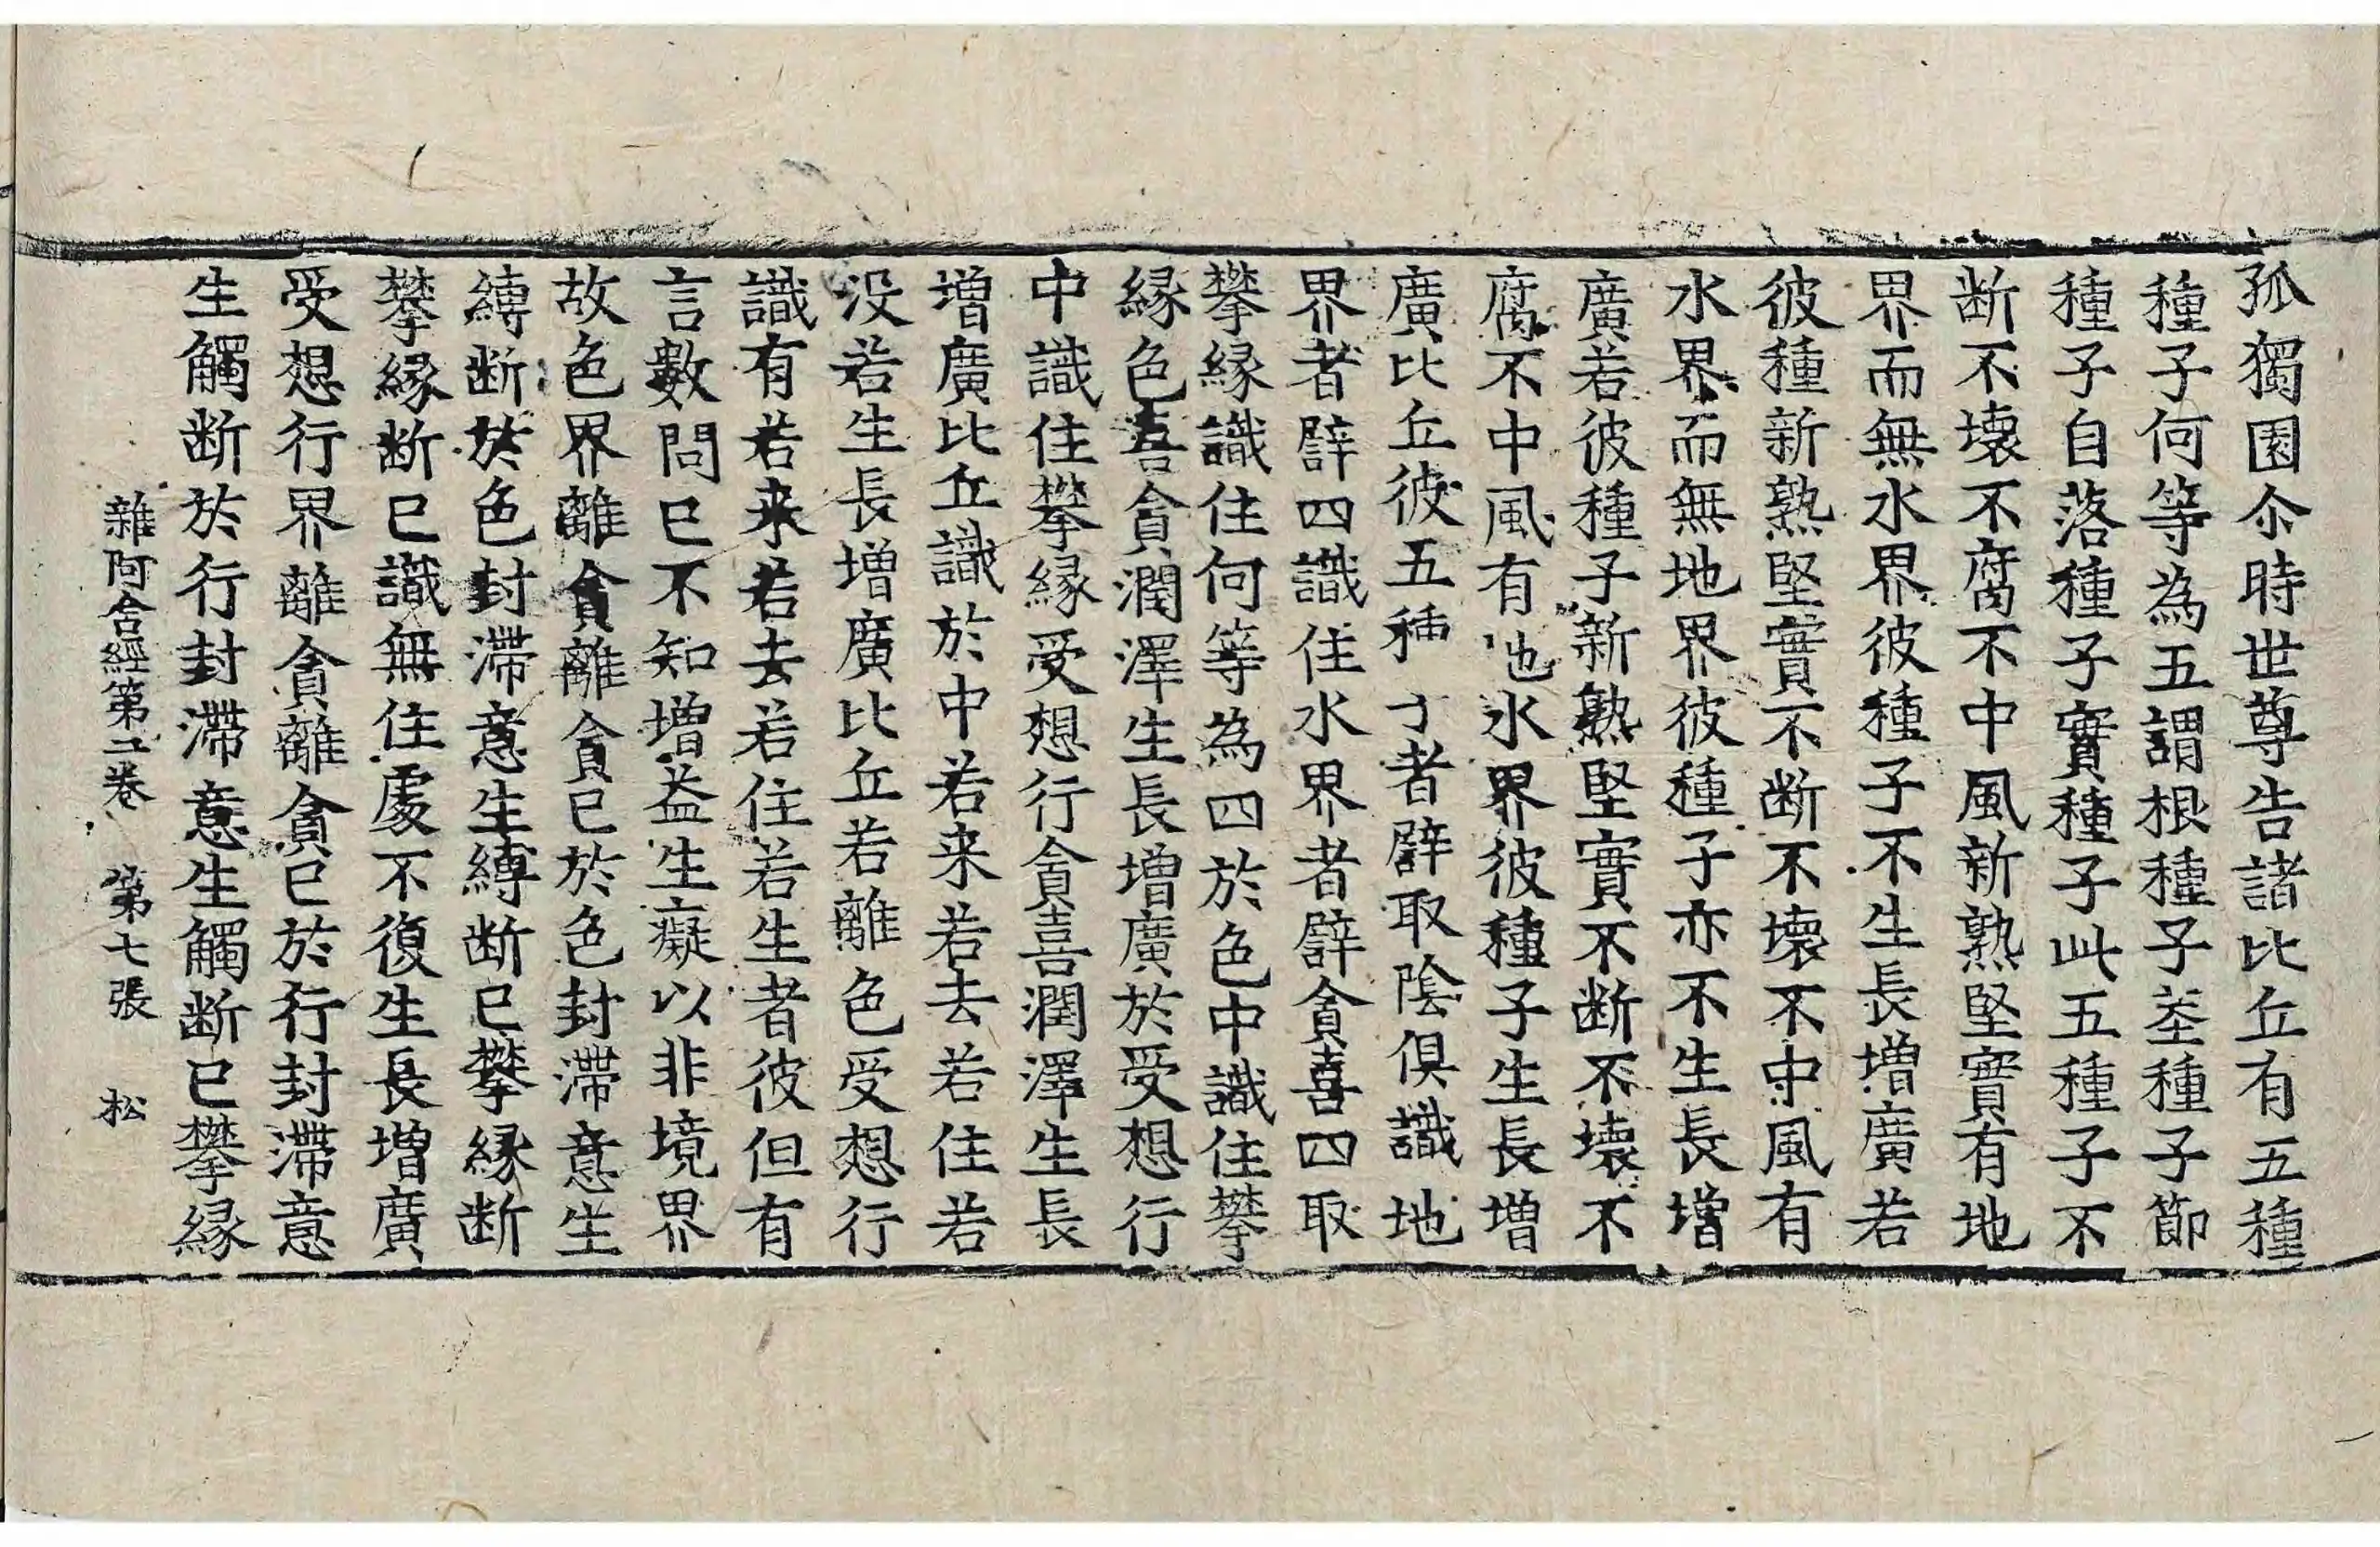 孤獨園尒時世尊告諸比丘有五種
種子何等為五謂根種子莖種子節
種子自落種子實種子此五種子不
断不壞不腐不中風新熟堅實有地
界而無水界彼種子不生長增廣若
彼種新熟堅實不断不壞不中風有
水界而無地界彼種子亦不生長增
廣若彼種子新熟堅實不断不壞不
腐不中風有地水界彼種子生長增
廣比丘彼五種子者譬取陰俱識地
界者譬四識住水界者譬貪喜四取
攀縁識住何等為四於色中識住攀
縁色喜貪潤澤生長增廣於受想行
中識住攀縁受想行貪喜潤澤生長
增廣比丘識於中若来若去若住若
没若生長增廣比丘若離色受想行
識有若来若去若住若生者彼但有
言數問已不知增益生癡以非境界
故色界離貪離貪已於色封滯意生
縛断於色封滯意生縛断已攀縁断
攀縁断已識無住處不復生長增廣
受想行界離貪離貪已於行封滯意
生觸断於行封滯意生觸断已攀縁
雜阿含經第二卷 第七張 松